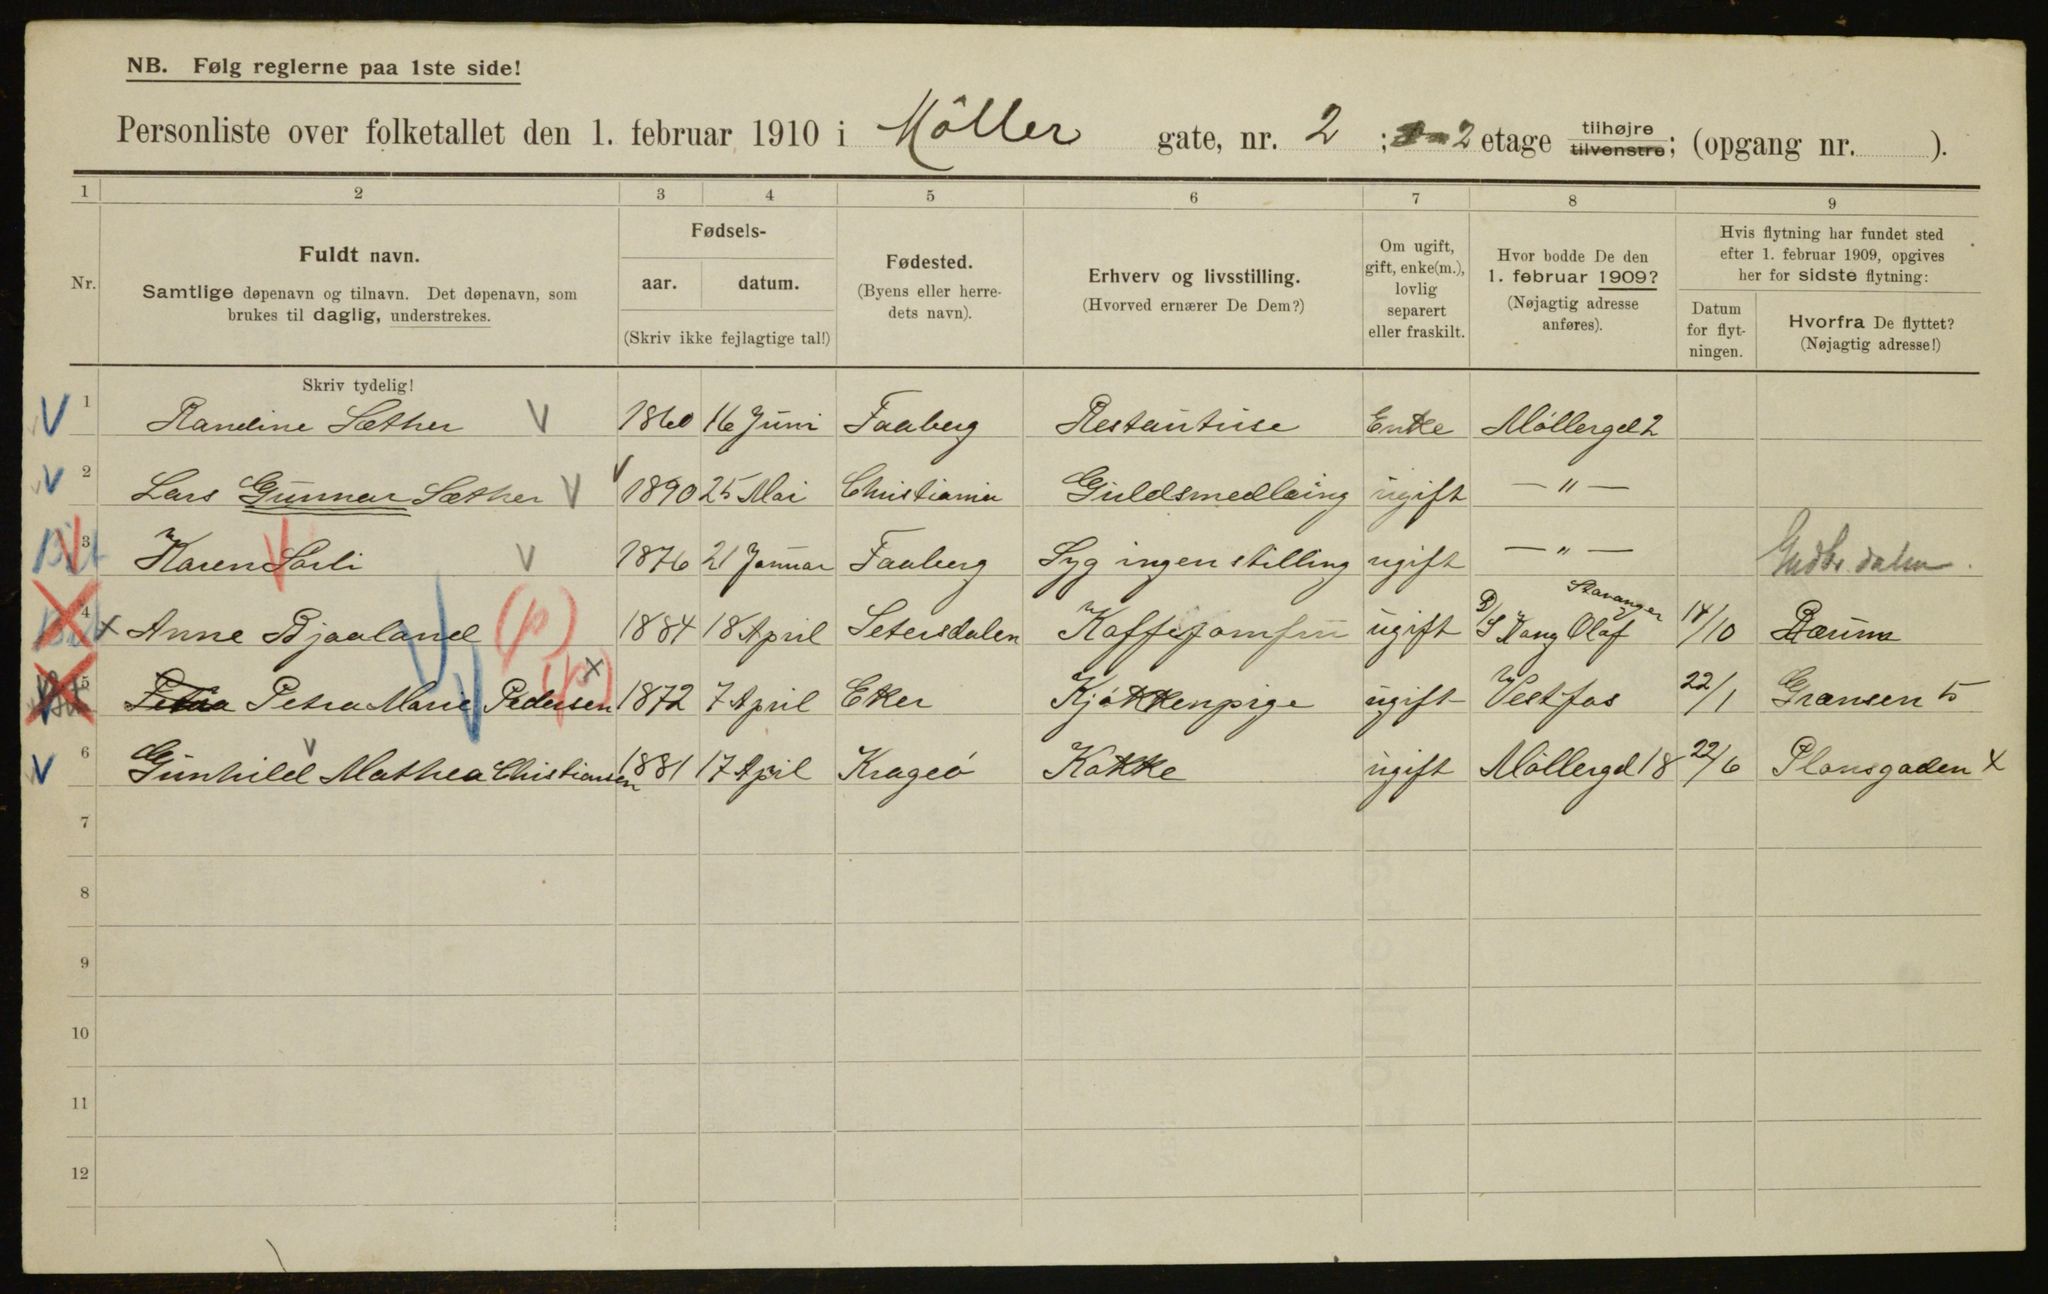 NB. Følg reglerne paa 1ste side!
Personliste over folketallet den 1. februar 1910 i Möller gate, nr. 2 ; 2 etage tilhøjre tilvenstre; (opgang nr. ).
1 2 3 4 5 6 7 8 9
Nr.
Fuldt navn.
Samtlige døpenavn og tilnavn. Det døpenavn, som
brukes til daglig, understrekes.
Fødsels-
aar. datum.
(Skriv ikke fejlagtige tal!)
Fødested.
(Byens eller herre-
dets navn).
Erhverv og livsstilling.
(Hvorved ernærer De Dem?)
Om ugift,
gift, enke(m.),
lovlig
separert
eller fraskilt.
Hvor bodde De den
1. februar 1909?
(Nøjagtig adresse
anføres).
Hvis flytning har fundet sted
efter 1. februar 1909, opgives
her for sidste flytning:
Datum
for flyt-
ningen.
Hvorfra De flyttet?
(Nøjagtig adresse!)
Skriv tydelig!
1 Randine Sæther V 1860 16 Juni Faaberg Enke Möllergd 2
2 Lars Gunnar Sæther V 1890 25 Mai Christiania Guldsmedlæing ugift — " —
3 Karen Sörli V 1876 21 Januar Faaberg Syg ingen stilling ugift — " —
4 x Anne Bjaaland (p) 1884 18 April Setersdalen ugift D/S Kong Olaf Stavanger 14/10
5 Petra Marie Pedersen (p) x 1872 7 April Eker Kjøkkenpige ugift Vestfos 22/1 Grænsen 5
6 Gunhild Mathea Christiansen 1881 17 April Krageö Kokke ugift Möllergd 18 22/6 x
7
8
9
10
11
12